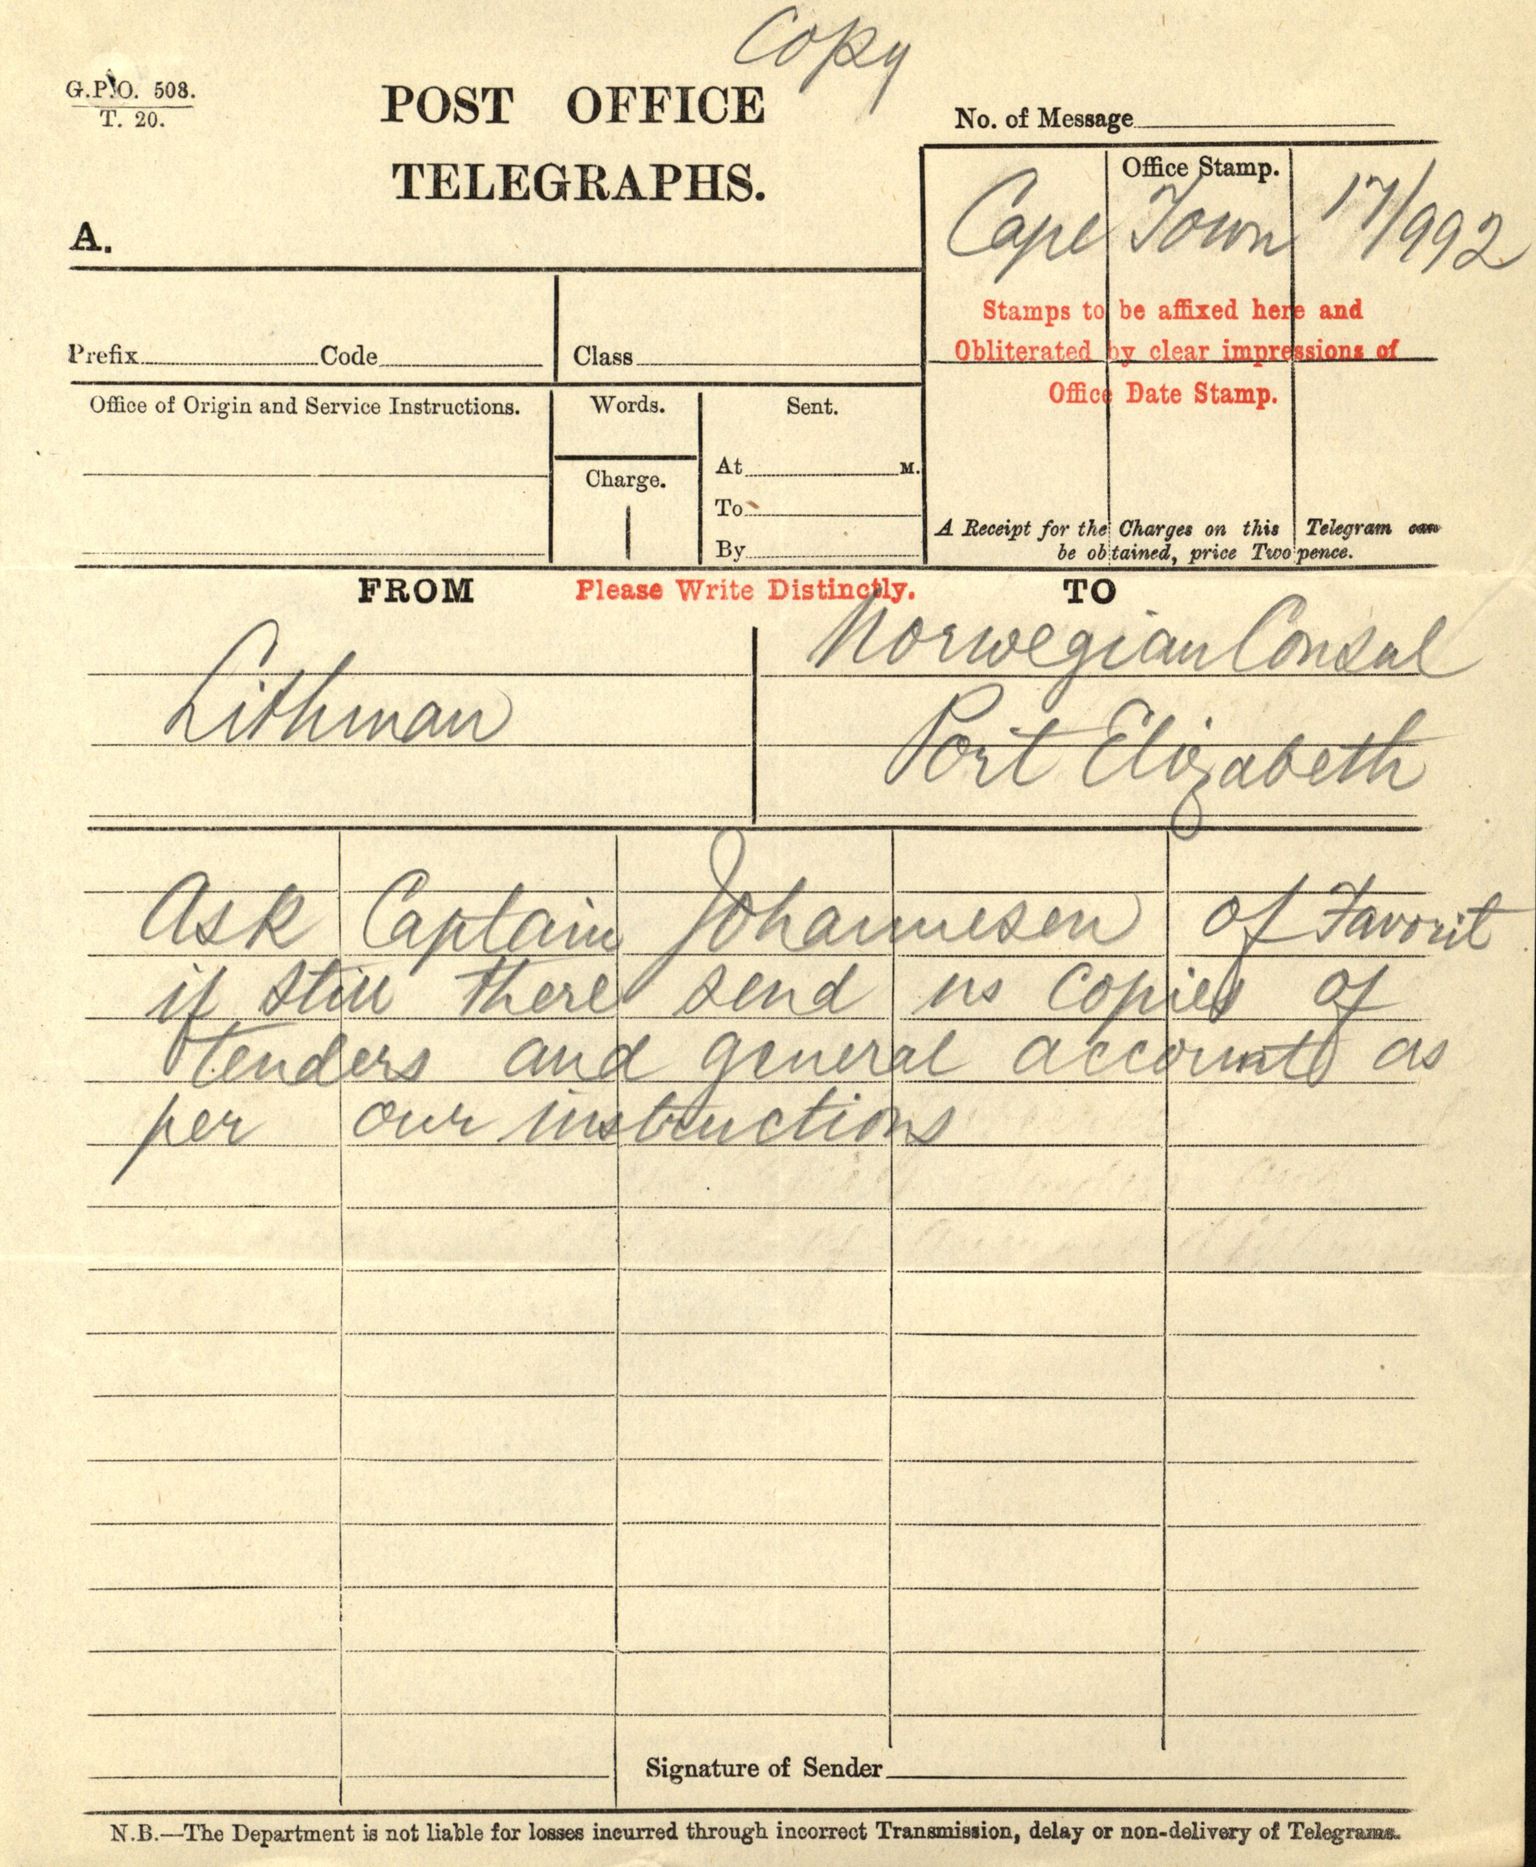 Copy
G.P.O. 508.
T. 20.
POST OFFICE
TELEGRAPHS.
No. of Message
A.
Office Stamp.
Cape Town 17/992
Stamps to be affixed here and
Obliterated by clear impressions of
Office Date Stamp.
A Receipt for the Charges on this Telegram can
be obtained, price Twopence.
Prefix Code Class
Office of Origin and Service Instructions.
Words.
Charge.
Sent.
At M.
To
By
FROM Please Write Distinctly. TO
Lithman
Norwegian Consul
Port Elizabeth
Ask Captain Johannesen of Favorit
if still there send us copies of
tenders and general account as
per our instructions
Signature of Sender
N.B.—The Department is not liable for losses incurred through incorrect Transmission, delay or non-delivery of Telegrams.